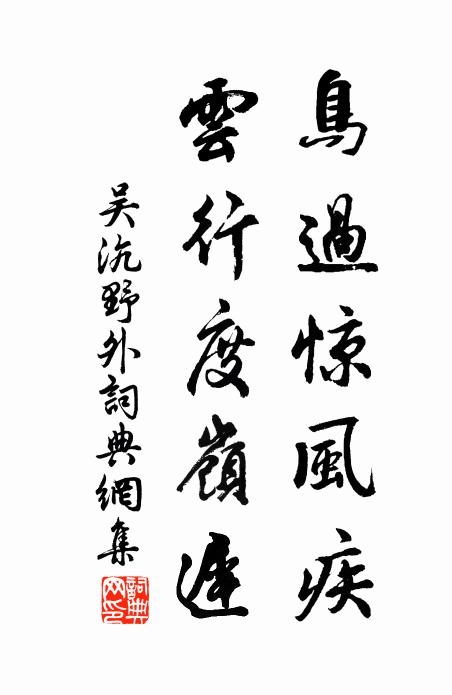 鳥過惊風疾
雲行度嶺遲
吴沆野外詞典網集
詞典網印